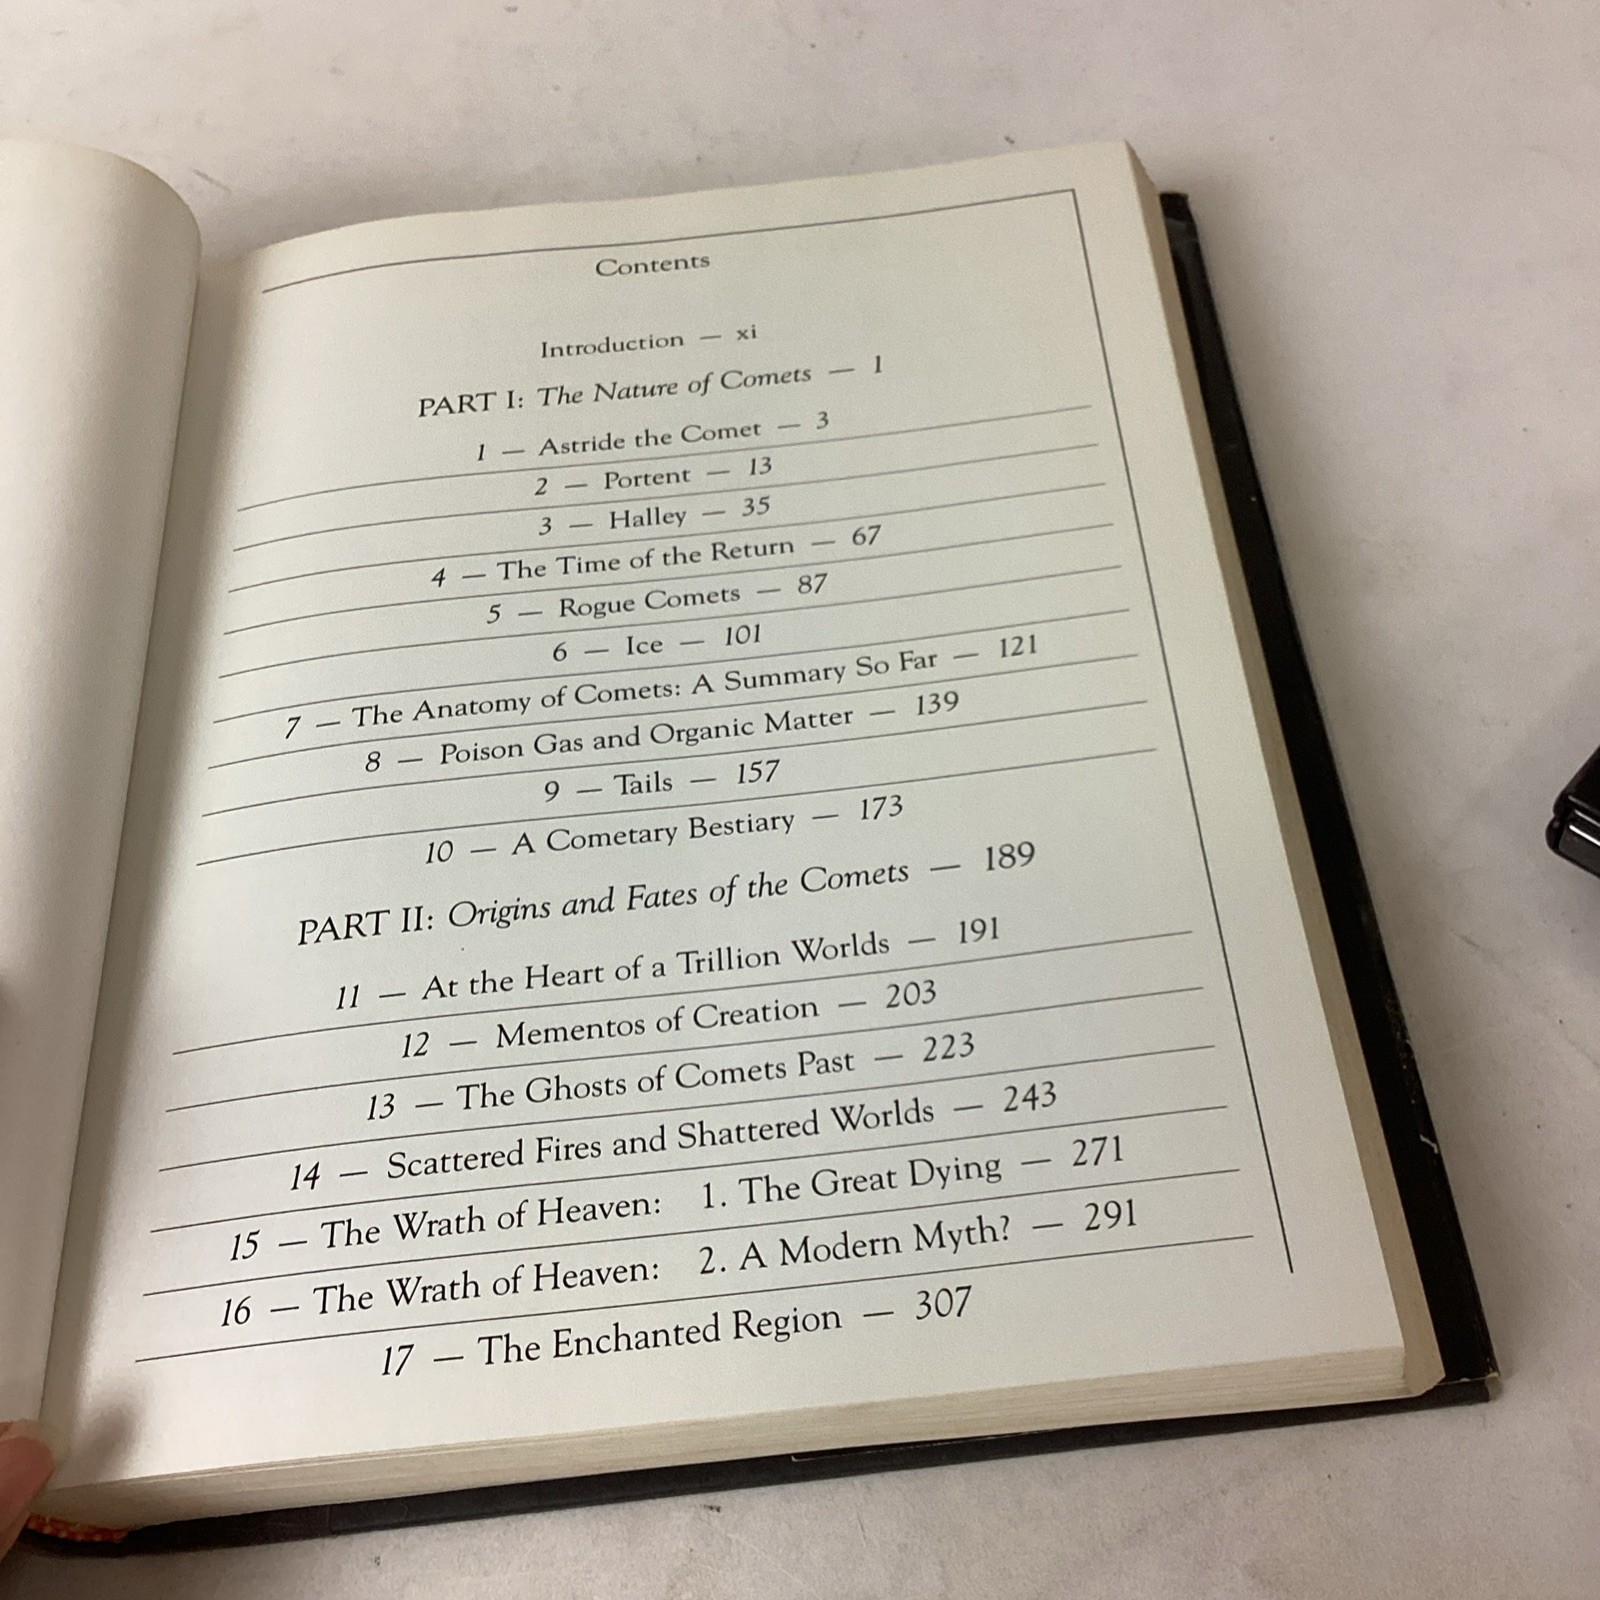 Contents
Introduction — xi
PART I: The Nature of Comets — 1
1 — Astride the Comet — 3
2 — Portent — 13
3 — Halley — 35
4 — The Time of the Return — 67
5 — Rogue Comets — 87
6 — Ice — 101
7 — The Anatomy of Comets: A Summary So Far — 121
8 — Poison Gas and Organic Matter — 139
9 — Tails — 157
10 — A Cometary Bestiary — 173
PART II: Origins and Fates of the Comets — 189
11 — At the Heart of a Trillion Worlds — 191
12 — Mementos of Creation — 203
13 — The Ghosts of Comets Past — 223
14 — Scattered Fires and Shattered Worlds — 243
15 — The Wrath of Heaven: 1. The Great Dying — 271
16 — The Wrath of Heaven: 2. A Modern Myth? — 291
17 — The Enchanted Region — 307